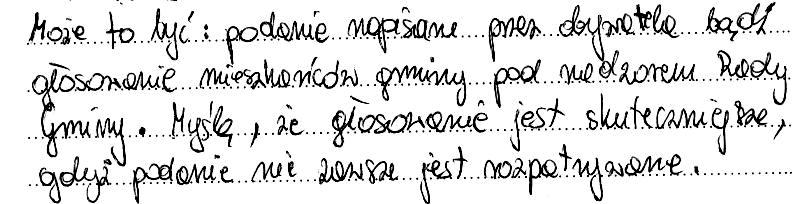 Może to być: podanie napisane przez obywatela bądź
głosowanie mieszkańców gminy pod nadzorem Rady
Gminy. Myślę, że głosowanie jest skuteczniejsze,
gdyż podanie nie zawsze jest rozpatrywane.